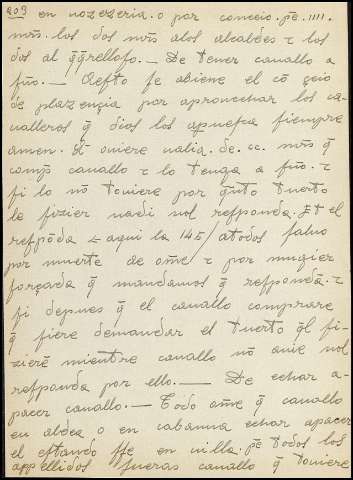 203 en nozezeria. o por conceio. pē. IIII.
mr̄s. los dos mr̄s alos alcaldes τ los
dos al q̄rellofo. — De tener cauallo a
fuo. — Qefto fe abiene el cōceio
de plazençia por aprouechar los ca-
ualleros q̄ dios los apuefca fiempre
amen. oniere ualia. de. cc. mr̄s q̄
comp̄ cauallo τ lo tenga a fuo. τ
fi lo nō touiere por q̄nto tuerto
le fizier nadi nol refponda. Et el
refpōda aqui la 145/ atodos faluo
por muerte de ome τ por mugier
forçada q̄ mandamos q̄ refpondā. τ
fi depues q̄ el cauallo comprare
q̄ fiere demandar el tuerto q̄l fi-
zierē mientre cauallo nō ouie nol
refponda por ello. — De echar a-
pacer cauallo. — Todo ome q̄ cauallo
en aldea o en cabanna echar apacer
el eftando ffe en uilla. pē todos los
appellidos fueras cauallo q̄ touiere